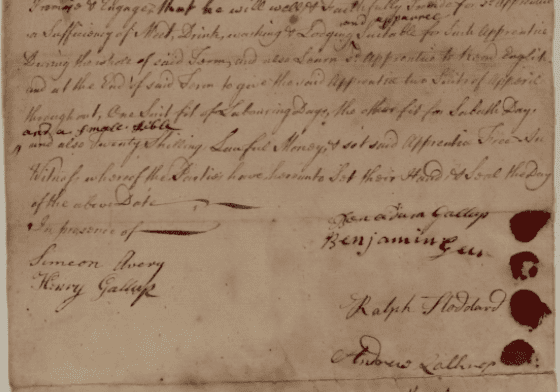 Promise & Engage, that he will well & Faithfully Provide for sd Apprentice
a Sufficiency of Meat, Drink, washing & Lodging and apparrel Suitable for Such Apprentice
During the whole of said Term, and also Learn sd Apprentice to Read English
and at the End of said Term to give the said Apprentice two Suits of Apparil
throughout, One Suit fit of Labouring Days, the other fit for Sabath Days
and a small bible
and also Twenty Shillings Lawful Money, & set said Apprentice Free In
Witness whereof the Parties have hereunto Set their Hands & Seal the Day
of the above Date
In presence of
Simeon Avery
Henry Gallup
Gallup
Benjamin
Ralph Stoddard
Andrew Lathrop